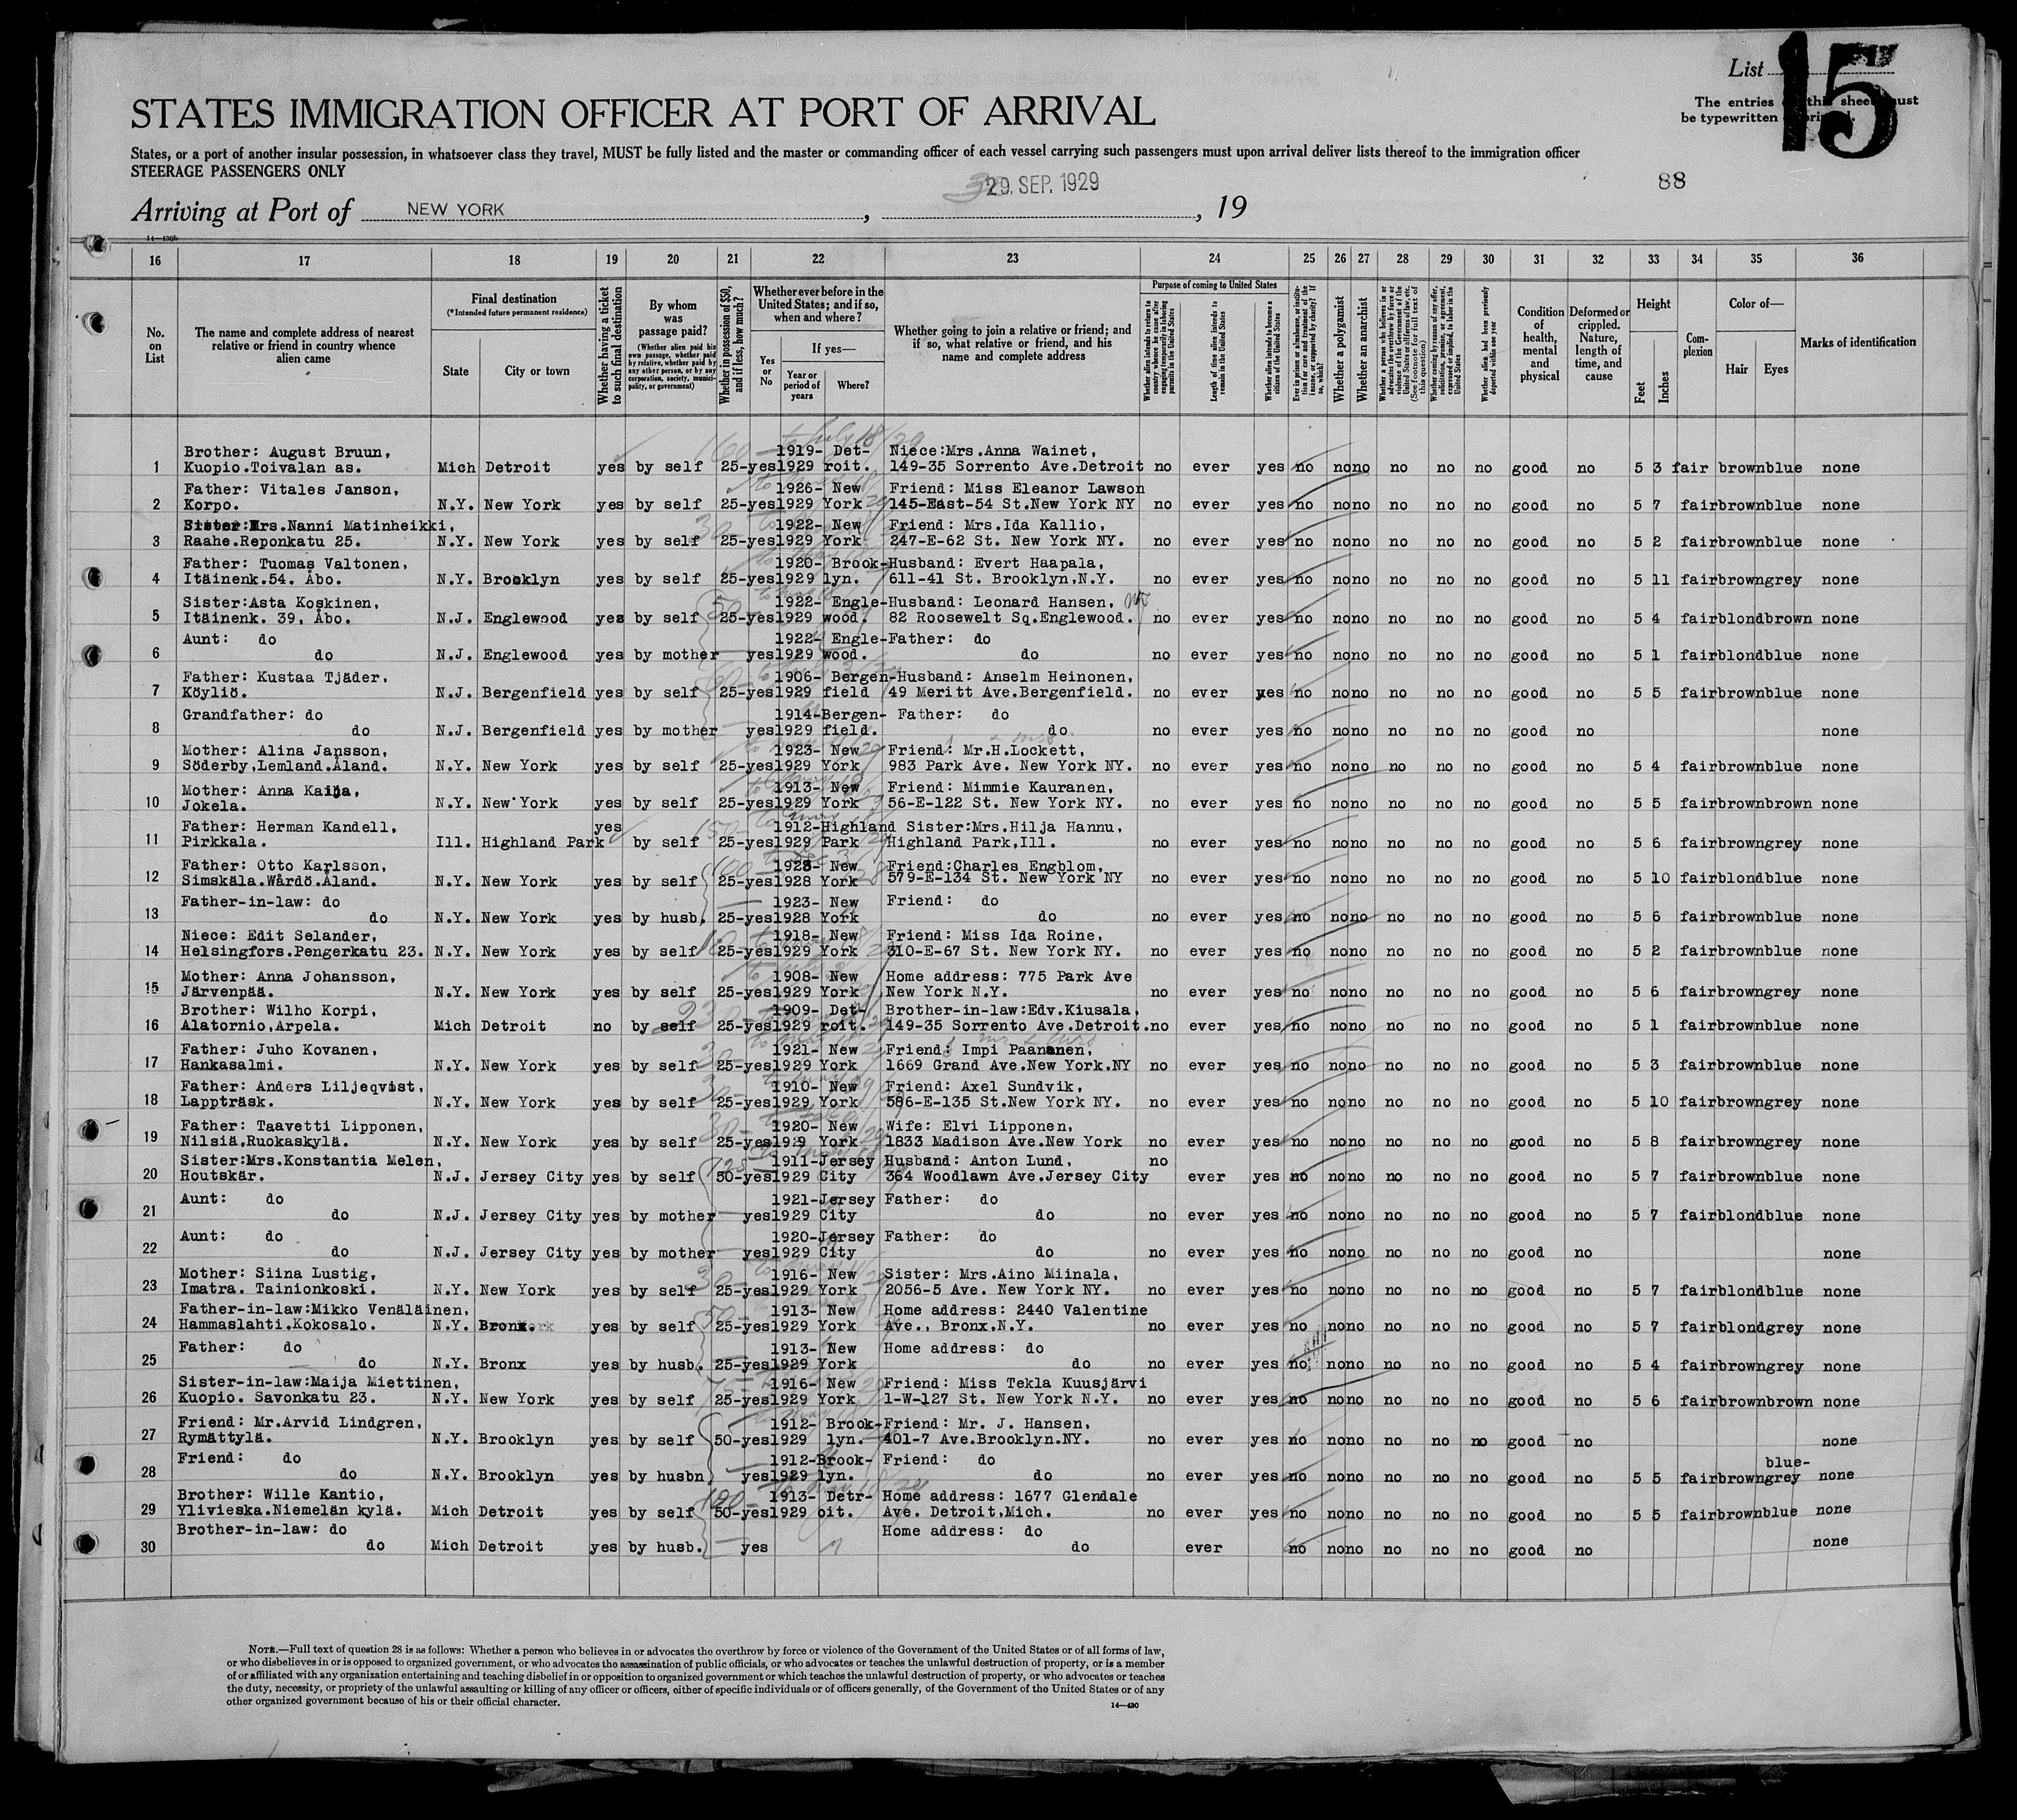 List 15
The entries on this sheet must
be typewritten or printed.
STATES IMMIGRATION OFFICER AT PORT OF ARRIVAL
States, or a port of another insular possession, in whatsoever class they travel, MUST be fully listed and the master or commanding officer of each vessel carrying such passengers must upon arrival deliver lists thereof to the immigration officer
STEERAGE PASSENGERS ONLY
88
29. SEP. 1929
Arriving at Port of NEW YORK , , 19
14—430b
16 17 18 19 20 21 22 23 24 25 26 27 28 29 30 31 32 33 34 35 36
No. on List
The name and complete address of nearest relative or friend in country whence alien came
Final destination
(*Intended future permanent residence)
State
City or town
Whether having a ticket to such final destination
By whom was passage paid?
(Whether alien paid his own passage, whether paid by relative, whether paid by any other person, or by any corporation, society, municipality, or government)
Whether in possession of $50, and if less, how much?
Whether ever before in the United States; and if so, when and where?
Yes or No
If yes—
Year or period of years
Where?
Whether going to join a relative or friend; and if so, what relative or friend, and his name and complete address
Purpose of coming to United States
Whether alien intends to return to country whence he came after engaging temporarily in laboring pursuits in the United States
Length of time alien intends to remain in the United States
Whether alien intends to become a citizen of the United States
Ever in prison or almshouse, or institution for care and treatment of the insane, or supported by charity? If so, which?
Whether a polygamist
Whether an anarchist
Whether a person who believes in or advocates the overthrow by force or violence of the Government of the United States or all forms of law, etc. (See footnote for full text of this question)
Whether coming by reason of any offer, solicitation, promise, or agreement, expressed or implied, to labor in the United States
Whether alien had been previously deported within one year
Condition of health, mental and physical
Deformed or crippled. Nature, length of time, and cause
Height
Feet
Inches
Complexion
Color of—
Hair
Eyes
Marks of identification
Brother: August Bruun, 1919- Det- Niece:Mrs.Anna Wainet,
1 Kuopio.Toivalan as. Mich Detroit yes by self 25-yes1929 roit. 149-35 Sorrento Ave.Detroit no ever yes no no no no no no good no 5 3 fair brown blue none
Father: Vitales Janson, 1926- New Friend: Miss Eleanor Lawson
2 Korpo. N.Y. New York yes by self 25-yes1929 York 145-East-54 St.New York NY no ever yes no no no no no no good no 5 7 fair brown blue none
Sister:Mrs.Nanni Matinheikki, 1922- New Friend: Mrs.Ida Kallio,
3 Raahe.Reponkatu 25. N.Y. New York yes by self 25-yes1929 York. 247-E-62 St. New York NY. no ever yes no no no no no no good no 5 2 fair brown blue none
Father: Tuomas Valtonen, 1920- Brook- Husband: Evert Haapala,
4 Itäinenk.54. Åbo. N.Y. Brooklyn yes by self 25-yes1929 lyn. 611-41 St. Brooklyn,N.Y. no ever yes no no no no no no good no 5 11 fair brown grey none
Sister:Asta Koskinen, 1922- Engle- Husband: Leonard Hansen,
5 Itäinenk. 39, Åbo. N.J. Englewood yes by self 25-yes1929 wood. 82 Roosewelt Sq.Englewood. no ever yes no no no no no no good no 5 4 fair blond brown none
Aunt: do 1922- Engle- Father: do
6 do N.J. Englewood yes by mother yes1929 wood. do no ever yes no no no no no no good no 5 1 fair blond blue none
Father: Kustaa Tjäder, 1906- Bergen- Husband: Anselm Heinonen,
7 Köyliö. N.J. Bergenfield yes by self 25-yes1929 field 49 Meritt Ave.Bergenfield. no ever yes no no no no no no good no 5 5 fair brown blue none
Grandfather: do 1914-Bergen- Father: do
8 do N.J. Bergenfield yes by mother yes1929 field. do no ever yes no no no no no no good no none
Mother: Alina Jansson, 1923- New Friend: Mr.H.Lockett,
9 Söderby,Lemland.Åland. N.Y. New York yes by self 25-yes1929 York 983 Park Ave. New York NY. no ever yes no no no no no no good no 5 4 fair brown blue none
Mother: Anna Kaija, 1913- New Friend: Mimmie Kauranen,
10 Jokela. N.Y. New York yes by self 25-yes1929 York 56-E-122 St. New York NY. no ever yes no no no no no no good no 5 5 fair brown brown none
Father: Herman Kandell, yes 1912-Highland Sister:Mrs.Hilja Hannu,
11 Pirkkala. Ill. Highland Park by self 25-yes1929 Park Highland Park,Ill. no ever yes no no no no no no good no 5 6 fair brown grey none
Father: Otto Karlsson, 1923- New Friend:Charles Engblom,
12 Simskäla.Wårdö.Åland. N.Y. New York yes by self 25-yes1928 York 579-E-134 St. New York NY no ever yes no no no no no no good no 5 10 fair blond blue none
Father-in-law: do 1923- New Friend: do
13 do N.Y. New York yes by husb. 25-yes1928 York do no ever yes no no no no no no good no 5 6 fair brown blue none
Niece: Edit Selander, 1918- New Friend: Miss Ida Roine,
14 Helsingfors.Pengerkatu 23. N.Y. New York yes by self 25-yes1929 York 310-E-67 St. New York NY. no ever yes no no no no no no good no 5 2 fair brown blue none
Mother: Anna Johansson, 1908- New Home address: 775 Park Ave
15 Järvenpää. N.Y. New York yes by self 25-yes1929 York New York N.Y. no ever yes no no no no no no good no 5 6 fair brown grey none
Brother: Wilho Korpi, 1909- Det- Brother-in-law:Edv.Kiusala,
16 Alatornio.Arpela. Mich Detroit no by self 25-yes1929 roit. 149-35 Sorrento Ave.Detroit. no ever yes no no no no no no good no 5 1 fair brown blue none
Father: Juho Kovanen, 1921- New Friend: Impi Paananen,
17 Hankasalmi. N.Y. New York yes by self 25-yes1929 York 1669 Grand Ave.New York.NY no ever yes no no no no no no good no 5 3 fair brown blue none
Father: Anders Liljeqvist, 1910- New Friend: Axel Sundvik,
18 Lappträsk. N.Y. New York yes by self 25-yes1929 York 586-E-135 St.New York NY. no ever yes no no no no no no good no 5 10 fair brown grey none
Father: Taavetti Lipponen, 1920- New Wife: Elvi Lipponen,
19 Nilsiä,Ruokaskylä. N.Y. New York yes by self 25-yes1929 York 1833 Madison Ave.New York no ever yes no no no no no no good no 5 8 fair brown grey none
Sister:Mrs.Konstantia Melen, 1911-Jersey Husband: Anton Lund, no
20 Houtskär. N.J. Jersey City yes by self 50-yes1929 City 364 Woodlawn Ave.Jersey City ever yes no no no no no no good no 5 7 fair brown blue none
Aunt: do 1921-Jersey Father: do
21 do N.J. Jersey City yes by mother yes1929 City do no ever yes no no no no no no good no 5 7 fair blond blue none
Aunt: do 1920-Jersey Father: do
22 do N.J. Jersey City yes by mother yes1929 City do no ever yes no no no no no no good no none
Mother: Siina Lustig, 1916- New Sister: Mrs.Aino Miinala,
23 Imatra. Tainionkoski. N.Y. New York yes by self 25-yes1929 York 2056-5 Ave. New York NY. no ever yes no no no no no no good no 5 7 fair blond blue none
Father-in-law:Mikko Venäläinen, 1913- New Home address: 2440 Valentine
24 Hammaslahti.Kokosalo. N.Y. Bronx. yes by self 25-yes1929 York Ave., Bronx,N.Y. no ever yes no no no no no no good no 5 7 fair blond grey none
Father: do 1913- New Home address: do
25 do N.Y. Bronx yes by husb. 25-yes1929 York do no ever yes no no no no no no good no 5 4 fair brown grey none
Sister-in-law:Maija Miettinen, 1916- New Friend: Miss Tekla Kuusjärvi
26 Kuopio. Savonkatu 23. N.Y. New York yes by self 25-yes1929 York 1-W-127 St. New York N.Y. no ever yes no no no no no no good no 5 6 fair brown brown none
Friend: Mr.Arvid Lindgren, 1912- Brook- Friend: Mr. J. Hansen,
27 Rymättylä. N.Y. Brooklyn yes by self 50-yes1929 lyn. 401-7 Ave.Brooklyn.NY. no ever yes no no no no no no good no none
Friend: do 1912-Brook- Friend: do blue-
28 do N.Y. Brooklyn yes by husbn yes1929 lyn. do no ever yes no no no no no no good no 5 5 fair brown grey none
Brother: Wille Kantio, 1913- Detr- Home address: 1677 Glendale
29 Ylivieska.Niemelän kylä. Mich Detroit yes by self 50-yes1929 oit. Ave. Detroit,Mich. no ever yes no no no no no no good no 5 5 fair brown blue none
Brother-in-law: do Home address: do
30 do Mich Detroit yes by husb. yes do ever no no no no no no good no none
NOTE.—Full text of question 28 is as follows: Whether a person who believes in or advocates the overthrow by force or violence of the Government of the United States or of all forms of law,
or who disbelieves in or is opposed to organized government, or who advocates the assassination of public officials, or who advocates or teaches the unlawful destruction of property, or is a member
of or affiliated with any organization entertaining and teaching disbelief in or opposition to organized government or which teaches the unlawful destruction of property, or who advocates or teaches
the duty, necessity, or propriety of the unlawful assaulting or killing of any officer or officers, either of specific individuals or of officers generally, of the Government of the United States or of any
other organized government because of his or their official character.
14—430